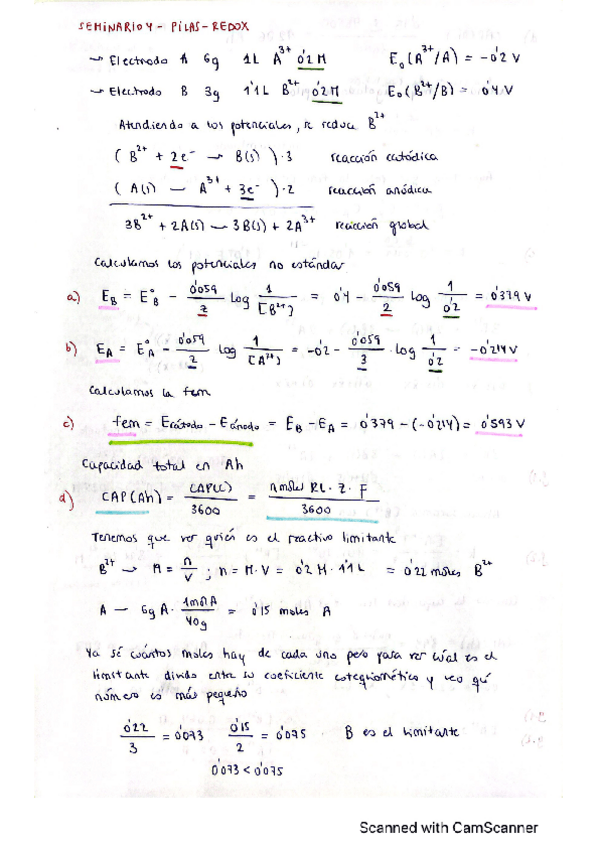 SEMINARIO 4 - PILAS - REDOX
→ Electrodo A 6g 1L A³⁺ 0'2 M E₀(A³⁺/A) = -0'2 V
→ Electrodo B 3g 1'1L B²⁺ 0'2 M E₀(B²⁺/B) = 0'4 V
Atendiendo a los potenciales, se reduce B²⁺
(B²⁺ + 2e⁻ → B(s))·3 reacción catódica
(A(s) — A³⁺ + 3e⁻)·2 reacción anódica
3B²⁺ + 2A(s) — 3B(s) + 2A³⁺ reacción global
Calculamos los potenciales no estándar
a) E_B = E°_B - 0'059/2 log 1/[B²⁺] = 0'4 - 0'059/2 log 1/0'2 = 0'379 V
b) E_A = E°_A - 0'059/2 log 1/[A³⁺] = -0'2 - 0'059/3 · log 1/0'2 = -0'214 V
Calculamos la fem
c) fem = Ecátodo - Eánodo = E_B - E_A = 0'379 - (-0'214) = 0'593 V
Capacidad total en Ah
d) CAP(Ah) = CAP(C)/3600 = n moles RL · z · F/3600
Tenemos que ver quién es el reactivo limitante
B²⁺ → M = n/V ; n = M·V = 0'2 M · 1'1 L = 0'22 moles B²⁺
A — 6g A · 1mol A/40g = 0'15 moles A
Ya sé cuántos moles hay de cada uno pero para ver cuál es el
limitante divido entre su coeficiente estequiométrico y veo qué
número es más pequeño
0'22/3 = 0'073 0'15/2 = 0'075 B es el limitante
0'073 < 0'075
Scanned with CamScanner